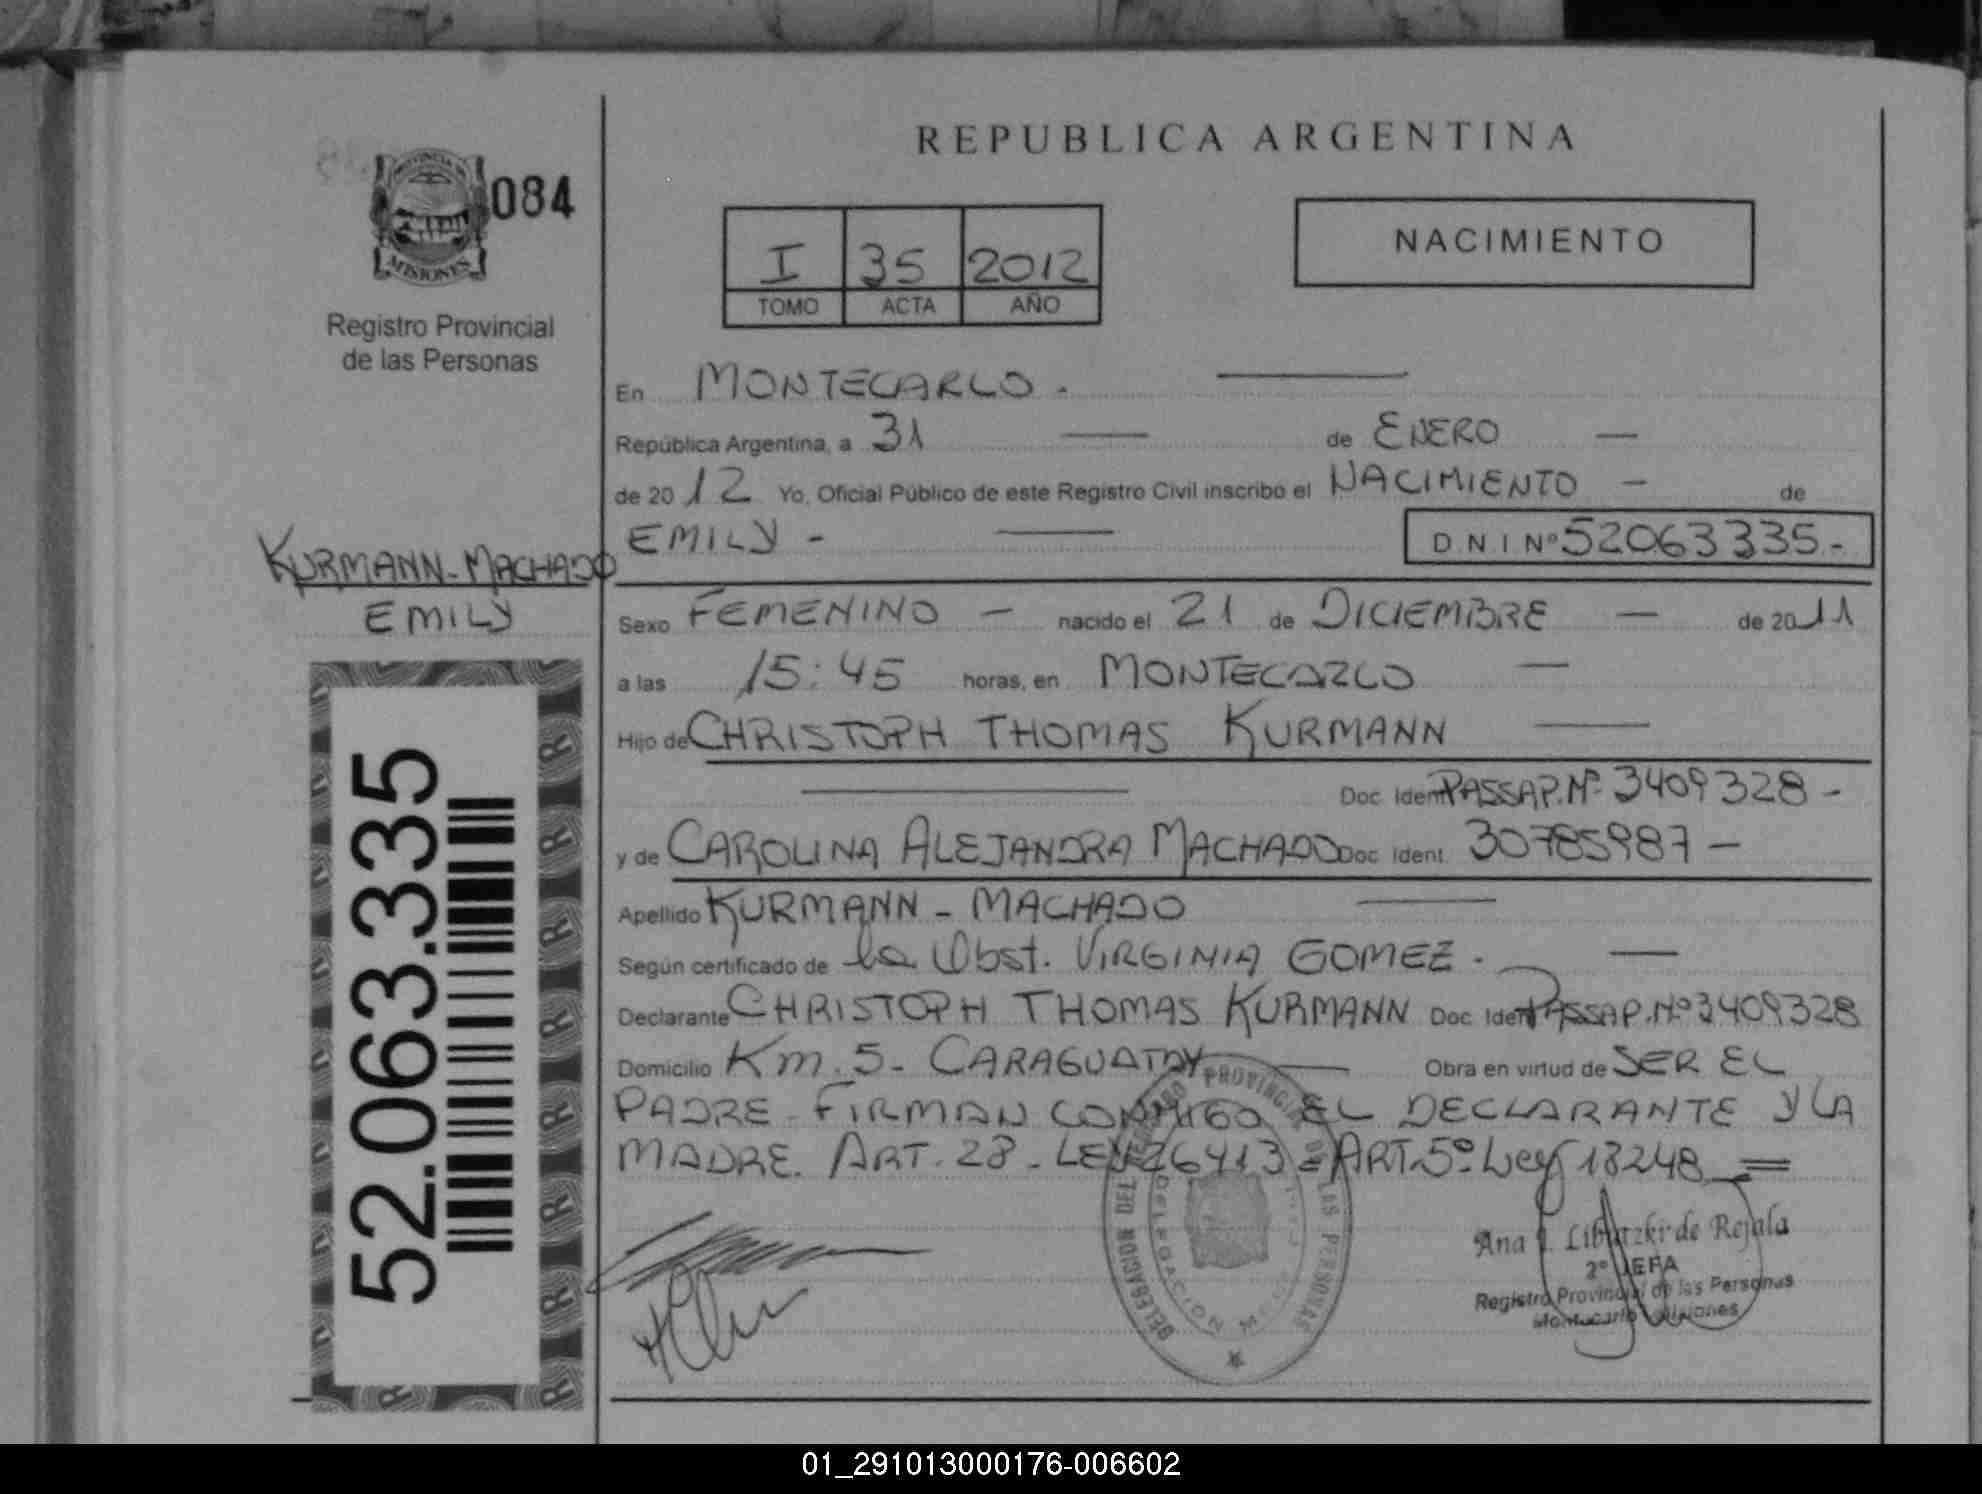 REPUBLICA ARGENTINA
084
PROVINCIA DE
MISIONES
Registro Provincial
de las Personas
I 35 2012
TOMO ACTA AÑO
NACIMIENTO
En MONTECARLO.
República Argentina, a 31 de ENERO
de 2012 Yo, Oficial Público de este Registro Civil inscribo el NACIMIENTO - de
EMILY - D.N.I Nº 52063335.-
KURMANN-MACHADO
EMILY
Sexo FEMENINO - nacido el 21 de DICIEMBRE - de 2011
a las 15:45 horas, en MONTECARLO
Hijo de CHRISTOPH THOMAS KURMANN
Doc Ident PASSAP. Nº 3409328 -
y de CAROLINA ALEJANDRA MACHADO Doc Ident 30785987 -
Apellido KURMANN - MACHADO
Según certificado de la Obst. VIRGINIA GOMEZ.
Declarante CHRISTOPH THOMAS KURMANN Doc Ident PASSAP. Nº 3409328
Domicilio Km. 5 - CARAGUATAY Obra en virtud de SER EL
PADRE - FIRMAN CONMIGO EL DECLARANTE Y LA
MADRE. ART. 28 - LEY 26413 = ART. 5º Ley 18248
52.063.335
DELEGACION DEL REGISTRO PROVINCIAL DE LAS PERSONAS
DELEGACION
Ana Libutzki de Rejala
2º JEFA
Registro Provincial de las Personas
Montecarlo Misiones
01_291013000176-006602